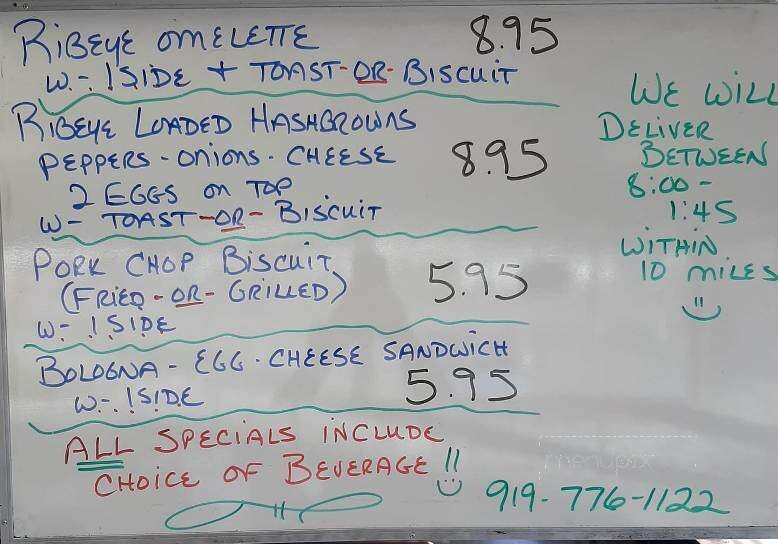 RIBEYE OMELETTE 8.95
W- 1 SIDE + TOAST-OR-BISCUIT
RIBEYE LOADED HASHBROWNS
PEPPERS - ONIONS - CHEESE 8.95
2 EGGS ON TOP
W- TOAST-OR-BISCUIT
PORK CHOP BISCUIT
(FRIED-OR-GRILLED) 5.95
W- 1 SIDE
BOLOGNA - EGG - CHEESE SANDWICH
W- 1 SIDE 5.95
ALL SPECIALS INCLUDE
CHOICE OF BEVERAGE !!
WE WILL
DELIVER
BETWEEN
8:00 -
1:45
WITHIN
10 MILES
menupix
919-776-1122